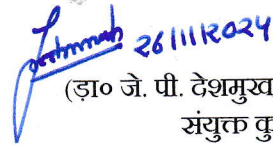 26/11/2024
(ड़ा० जे. पी. देशमुख
संयुक्त कु